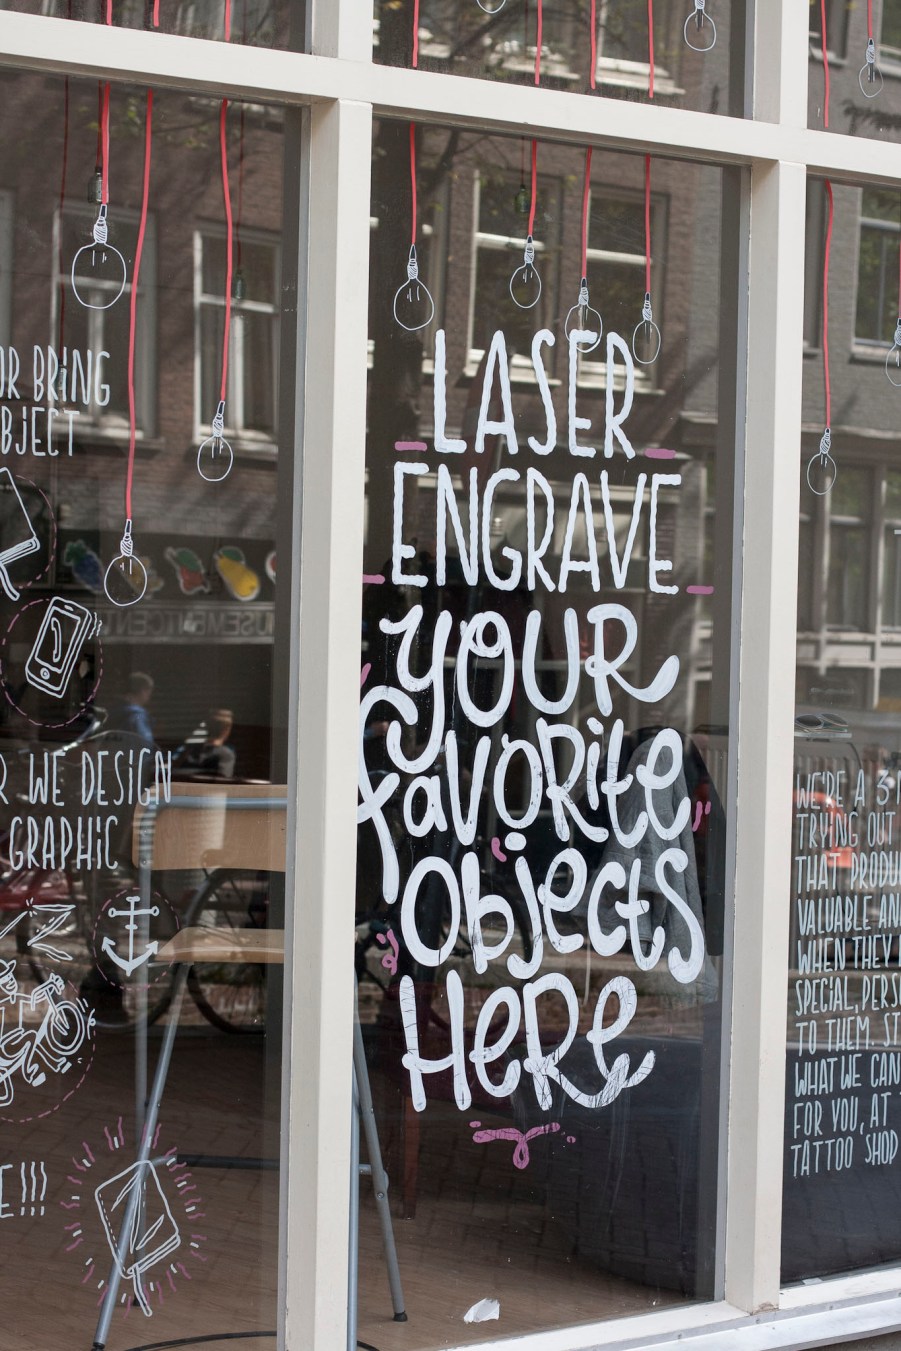 BRING
WE DESIGN
GRAPHIC
LASER
ENGRAVE
YOUR
favoRite
objects
HeRe
WE'RE A 3
TRYING OUT
THAT
VALUABLE
WHEN THEY
SPECIAL
TO THEM.
WHAT WE CAN
FOR YOU, AT
TATTOO SHOP